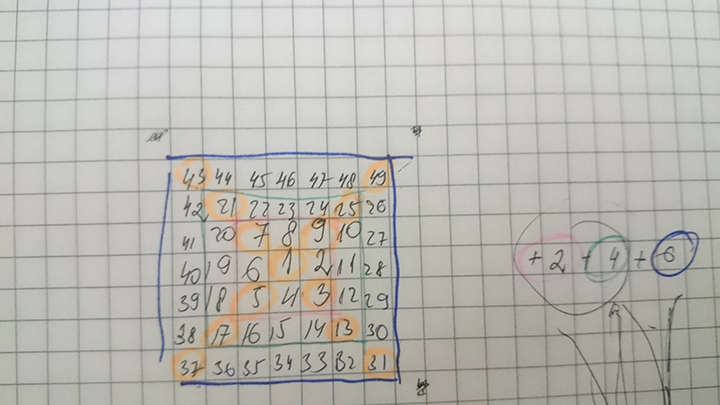 43 44 45 46 47 48 49
42 21 22 23 24 25 26
41 20 7 8 9 10 27
40 19 6 1 2 11 28
39 18 5 4 3 12 29
38 17 16 15 14 13 30
37 36 35 34 33 32 31
+ 2 + 4 + 6